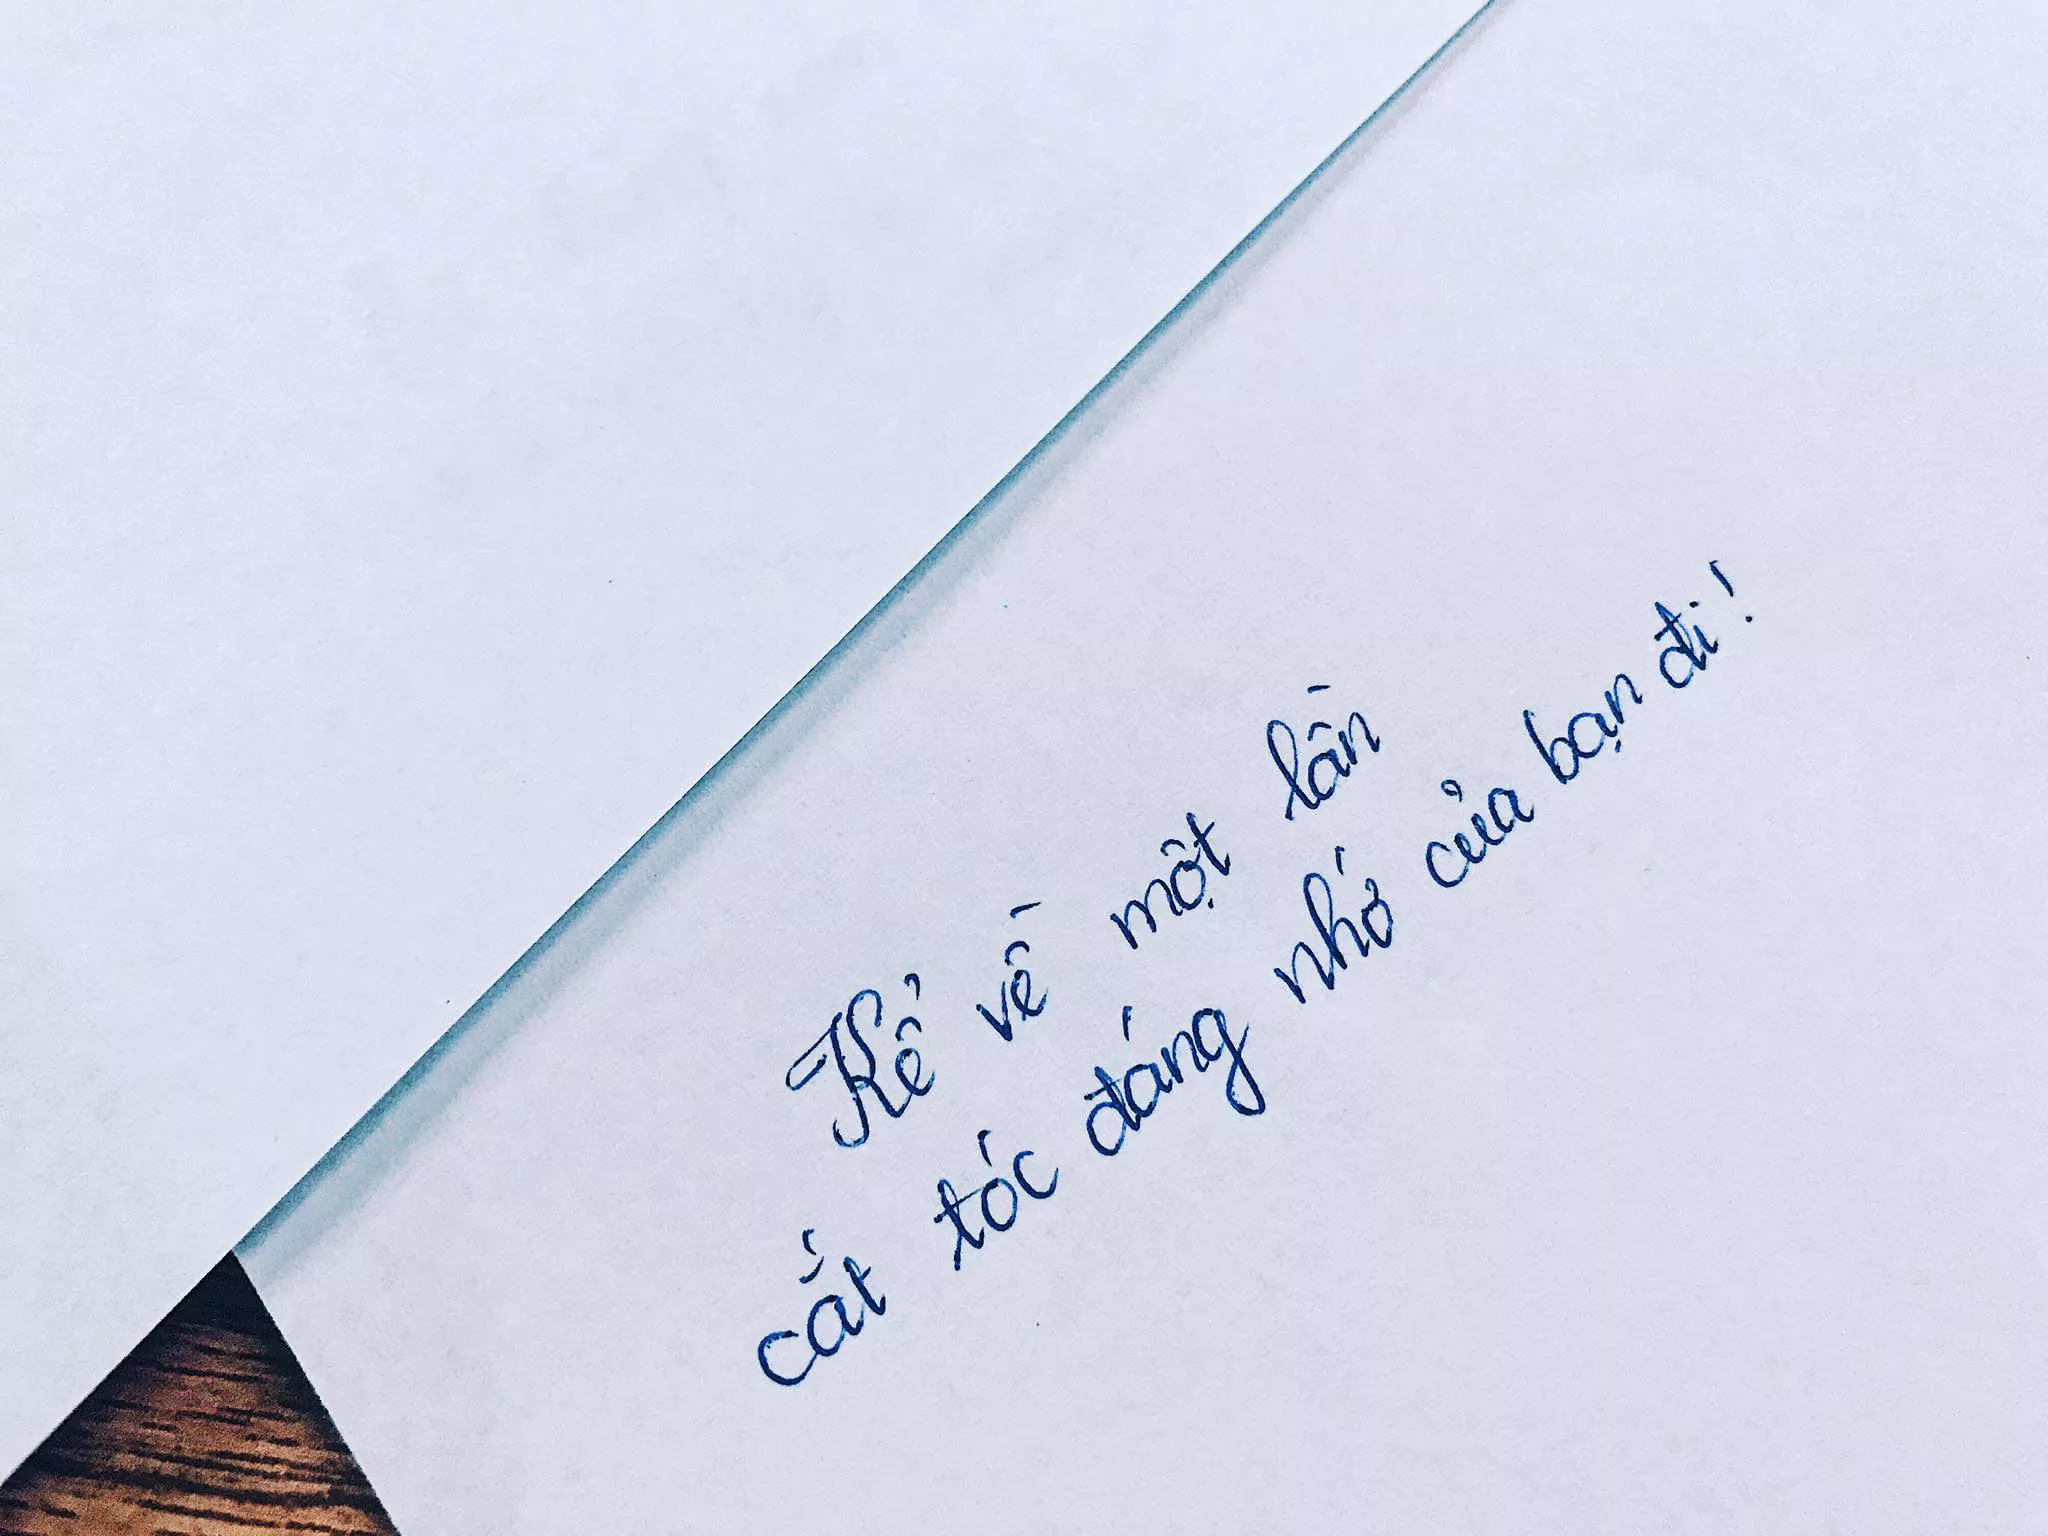 Kể về một lần
cắt tóc đáng nhớ của bạn đi!